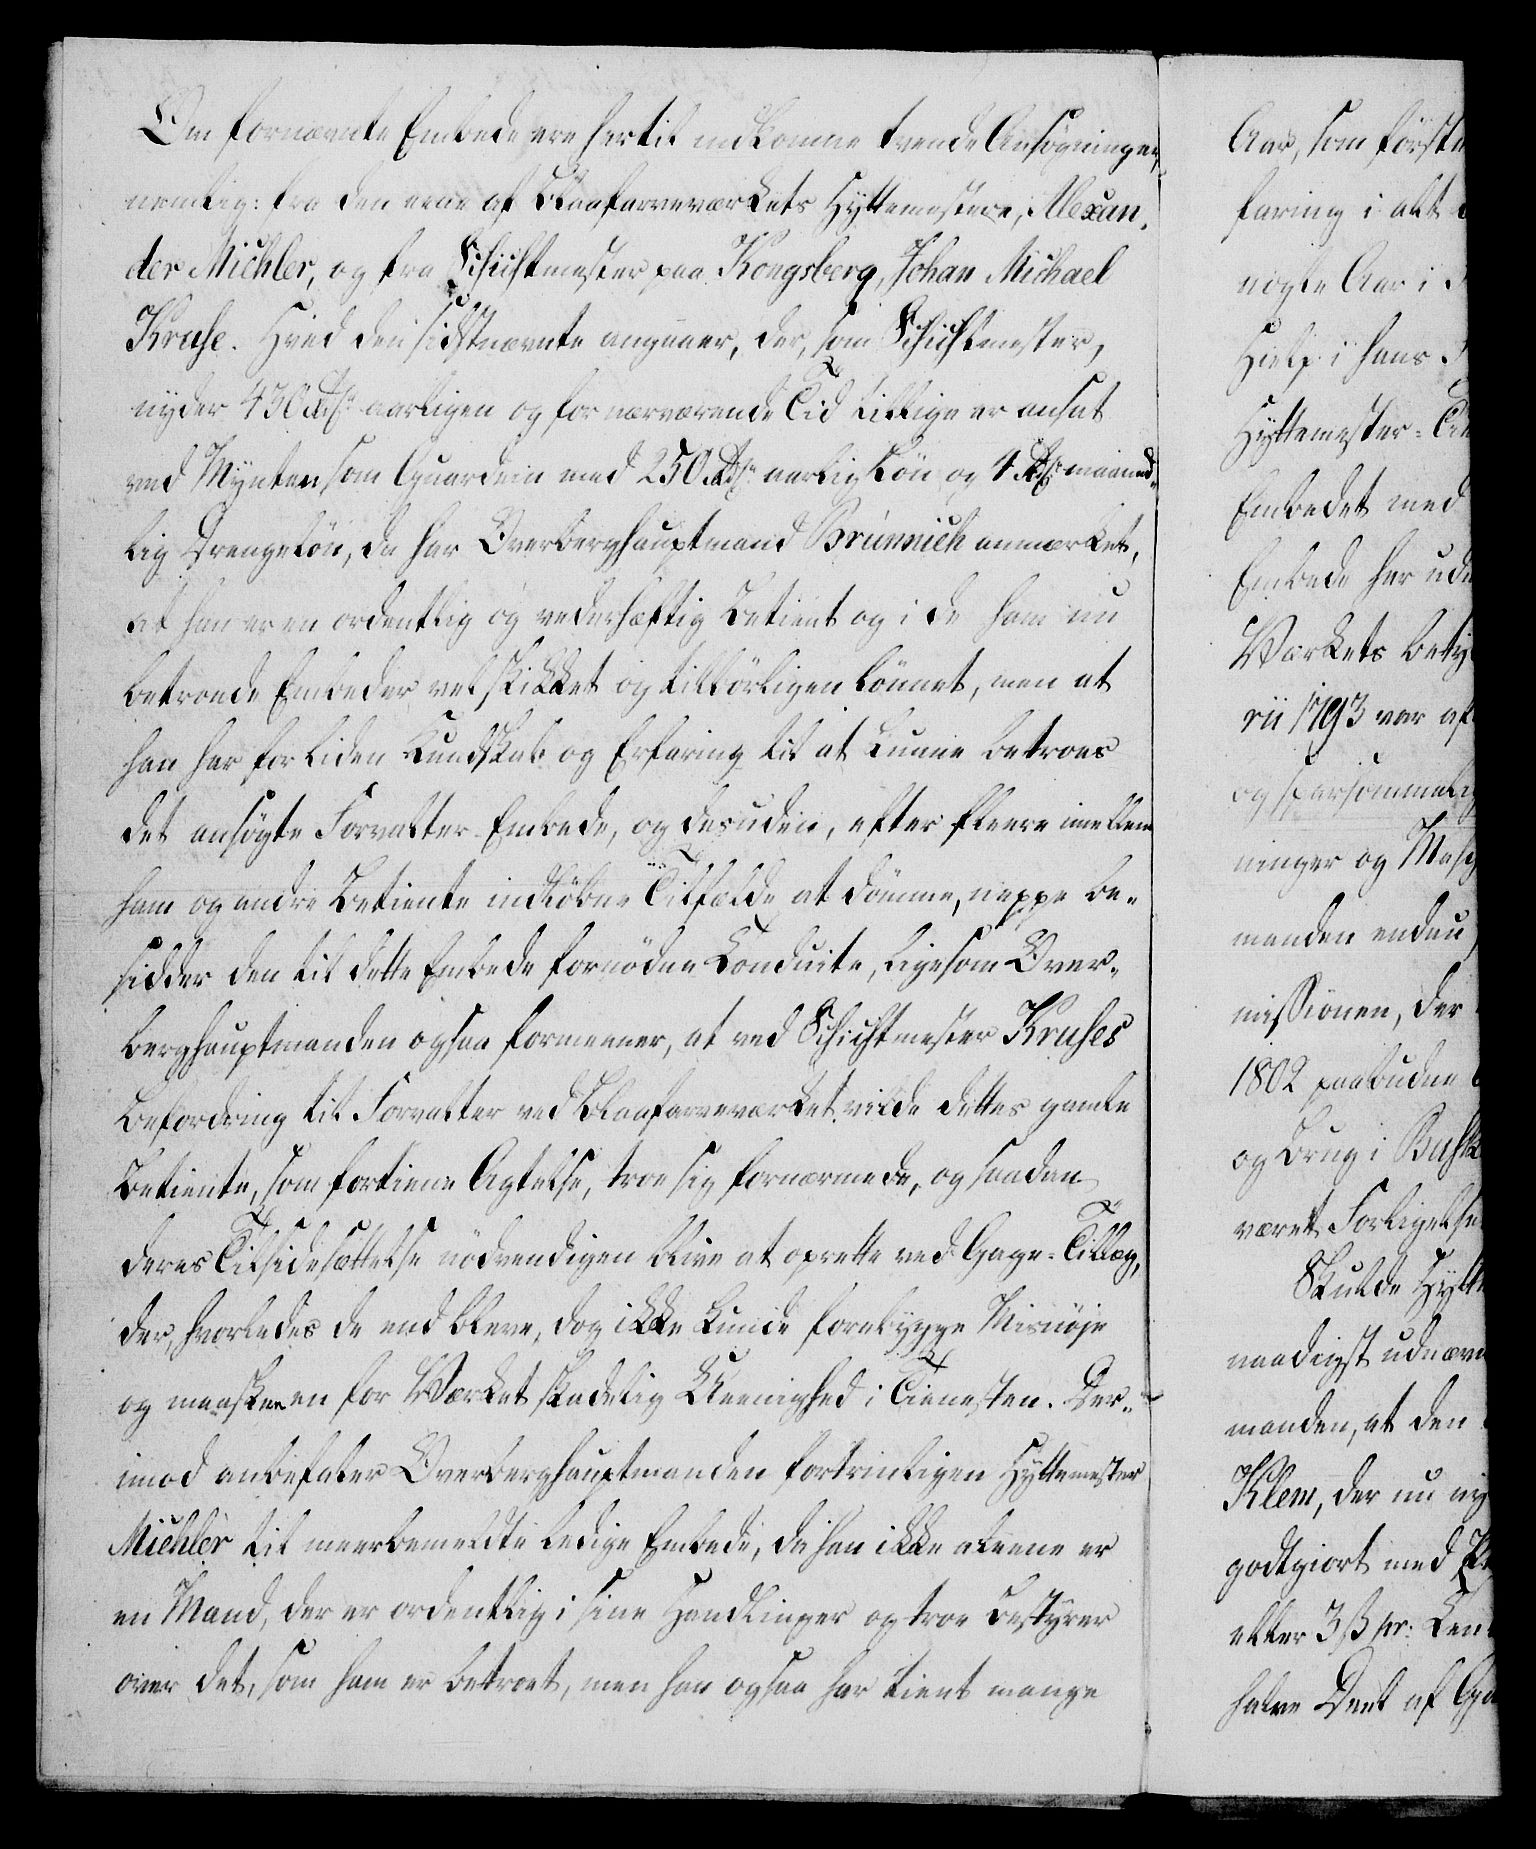 Om fornævnte Embede ere hertil indkomne tvende Ansøgninger,
nemlig: fra den eene af Blaafarveværkets Hyttemestere, Alexan-
der Michler, og fra Schichtmester paa Kongsberg, Johan Michael
Kruse. Hvad den sidstnævnte angaaer, der, som Schichtmester,
nyder 450 Rdr. aarligen og for nærværende Tid tillige er ansat
ved Mynten som Guardein med 250 Rdr. aarlig Løn og 4 Rdr. maaned-
lig Drengeløn, da har Overberghauptmand Brünnich anmærket,
at han er en ordentlig og vederhæftig Betient og i de ham nu
betroede Embeder vel skikket og tilbørligen lønnet, men at
han har for liden Kundskab og Erfaring til at kunne betroes
det ansøgte Forvalter-Embede, og desuden, efter fleere imellem
ham og andre Betiente indløbne Tilfælde at dømme, neppe be-
sidder den til dette Embede fornødne Conduite, ligesom Over-
berghauptmanden ogsaa formeener, at ved Schichtmester Kruses
Befordring til Forvalter ved Blaafarveværket vilde dettes gamle
Betiente, som fortiene Agtelse, troe sig fornærmede, og saadan
deres Tilsidesættelse nødvendigen blive at oprette ved Gage-Tillæg,
der, hvorledes de end bleve, dog ikke kunde forebygge Misnøje
og maaskee en for Værket skadelig Uenighed i Tienesten. Der-
imod anbefaler Overberghauptmanden fortrinligen Hyttemester
Michler til meerbemeldte ledige Embede, da han ikke aleene er
en Mand, der er ordentlig i sine Handlinger og troe Bestyrer
over det, som ham er betroet, men han ogsaa har tient mange
Aar, som første
faring i alt
nogle Aar i
Hielp i hans
Hyttemester-
Embedet med
Embede her
Værkets
rii 1793 var af
og sparsommelig
ninger og
manden endnu
missionen, der
1802 paabudne
og Brug i
været Forligelse
Skulde Hytte
naadigst udnævn
manden, at den
Klem, der nu ny
godtgiort med
eller 3 ß pr:
halve Deel af